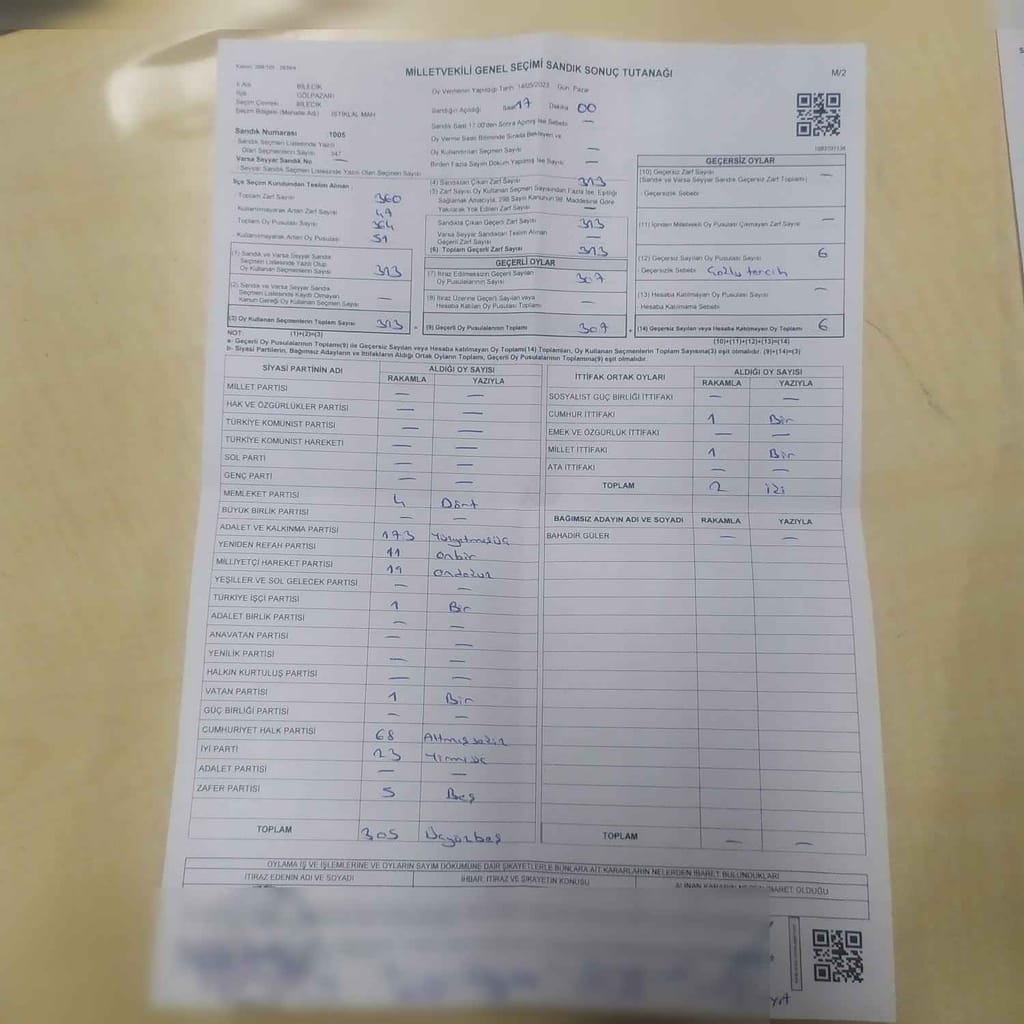 MİLLETVEKİLİ GENEL SEÇİMİ SANDIK SONUÇ TUTANAĞI
M/2
İl Adı BİLECİK
İlçe GÖLPAZARI
Seçim Çevresi BİLECİK
Seçim Bölgesi (Mahalle Adı) İSTİKLAL MAH
Oy Vermenin Yapıldığı Tarih 14/05/2023 Gün Pazar
Sandığın Açıldığı Saat 17 Dakika 00
Sandık Saat 17:00'den Sonra Açılmış İse Sebebi —
Oy Verme Saati Bitiminde Sırada Bekleyen ve
Oy Kullandırılan Seçmen Sayısı —
Birden Fazla Sayım Döküm Yapılmış İse Sayısı —
Sandık Numarası :1005
Sandık Seçmen Listesinde Yazılı
Olan Seçmenlerin Sayısı 347
Varsa Seyyar Sandık No —
Seyyar Sandık Seçmen Listesinde Yazılı Olan Seçmen Sayısı
İlçe Seçim Kurulundan Teslim Alınan :
Toplam Zarf Sayısı 360
Kullanılmayarak Artan Zarf Sayısı 47
Toplam Oy Pusulası Sayısı 364
Kullanılmayarak Artan Oy Pusulası 51
(1) Sandık ve Varsa Seyyar Sandık
Seçmen Listesinde Yazılı Olup
Oy Kullanan Seçmenlerin Sayısı 313
(2) Sandık ve Varsa Seyyar Sandık
Seçmen Listesinde Kaydı Olmayan
Kanun Gereği Oy Kullanan Seçmen Sayısı —
(3) Oy Kullanan Seçmenlerin Toplam Sayısı 313
(1)+(2)=(3)
(4) Sandıktan Çıkan Zarf Sayısı 313
(5) Zarf Sayısı Oy Kullanan Seçmen Sayısından Fazla İse, Eşitliği
Sağlamak Amacıyla, 298 Sayılı Kanunun 98. Maddesine Göre
Yakılarak Yok Edilen Zarf Sayısı —
Sandıkta Çıkan Geçerli Zarf Sayısı 313
Varsa Seyyar Sandıktan Teslim Alınan
Geçerli Zarf Sayısı —
(6) Toplam Geçerli Zarf Sayısı 313
GEÇERLİ OYLAR
(7) İtiraz Edilmeksizin Geçerli Sayılan
Oy Pusulalarının Sayısı 307
(8) İtiraz Üzerine Geçerli Sayılan veya
Hesaba Katılan Oy Pusulası Toplamı —
(9) Geçerli Oy Pusulalarının Toplamı 307
GEÇERSİZ OYLAR
(10) Geçersiz Zarf Sayısı —
(Sandık ve Varsa Seyyar Sandık Geçersiz Zarf Toplamı)
Geçersizlik Sebebi
(11) İçinden Milletvekili Oy Pusulası Çıkmayan Zarf Sayısı —
(12) Geçersiz Sayılan Oy Pusulası Sayısı 6
Geçersizlik Sebebi Çoklu tercih
(13) Hesaba Katılmayan Oy Pusulası Sayısı —
Hesaba Katılmama Sebebi
(14) Geçersiz Sayılan veya Hesaba Katılmayan Oy Toplamı 6
(10)+(11)+(12)+(13)=(14)
NOT:
a- Geçerli Oy Pusulalarının Toplamı(9) ile Geçersiz Sayılan veya Hesaba katılmayan Oy Toplamı(14) Toplamları, Oy Kullanan Seçmenlerin Toplam Sayısına(3) eşit olmalıdır. (9)+(14)=(3)
b- Siyasi Partilerin, Bağımsız Adayların ve İttifakların Aldığı Ortak Oyların Toplamı, Geçerli Oy Pusulalarının Toplamına(9) eşit olmalıdır.
SİYASİ PARTİNİN ADI ALDIĞI OY SAYISI
RAKAMLA YAZIYLA
MİLLET PARTİSİ — —
HAK VE ÖZGÜRLÜKLER PARTİSİ — —
TÜRKİYE KOMÜNİST PARTİSİ — —
TÜRKİYE KOMÜNİST HAREKETİ — —
SOL PARTİ — —
GENÇ PARTİ — —
MEMLEKET PARTİSİ 4 Dört
BÜYÜK BİRLİK PARTİSİ — —
ADALET VE KALKINMA PARTİSİ 173 Yüzyetmişüç
YENİDEN REFAH PARTİSİ 11 Onbir
MİLLİYETÇİ HAREKET PARTİSİ 19 Ondokuz
YEŞİLLER VE SOL GELECEK PARTİSİ — —
TÜRKİYE İŞÇİ PARTİSİ 1 Bir
ADALET BİRLİK PARTİSİ — —
ANAVATAN PARTİSİ — —
YENİLİK PARTİSİ — —
HALKIN KURTULUŞ PARTİSİ — —
VATAN PARTİSİ 1 Bir
GÜÇ BİRLİĞİ PARTİSİ — —
CUMHURİYET HALK PARTİSİ 68 Altmışsekiz
İYİ PARTİ 23 Yirmiüç
ADALET PARTİSİ — —
ZAFER PARTİSİ 5 Beş
TOPLAM 305 Üçyüzbeş
İTTİFAK ORTAK OYLARI ALDIĞI OY SAYISI
RAKAMLA YAZIYLA
SOSYALİST GÜÇ BİRLİĞİ İTTİFAKI — —
CUMHUR İTTİFAKI 1 Bir
EMEK VE ÖZGÜRLÜK İTTİFAKI — —
MİLLET İTTİFAKI 1 Bir
ATA İTTİFAKI — —
TOPLAM 2 iki
BAĞIMSIZ ADAYIN ADI VE SOYADI RAKAMLA YAZIYLA
BAHADIR GÜLER — —
TOPLAM — —
OYLAMA İŞ VE İŞLEMLERİNE VE OYLARIN SAYIM DÖKÜMÜNE DAİR ŞİKAYETLERLE BUNLARA AİT KARARLARIN NELERDEN İBARET BULUNDUKLARI
İTİRAZ EDENİN ADI VE SOYADI İHBAR, İTİRAZ VE ŞİKAYETİN KONUSU